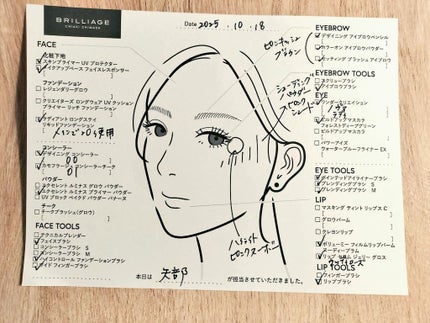 BRILLIAGE
CHIAKI SHIMADA
Date 2025.10.18
FACE
化粧下地
スキンプライマー UV プロテクター
メイクアップベース フェイスレスポンサー
ファンデーション
レジェンダリーグロウ
クリエイターズ ロングウェア UV クッション
プライマー リッチ ファンデーション
ラディアント ロングステイ
リキッドファンデーション
使用
コンシーラー
デザイニング コンシーラー
00
カモフラージュ コンシーラーチーク
01
パウダー
エクセレント ルミナス グロウ パウダー
エクセレント ルミナス プライマー パウダー
UV ブロック ベイクド パウダー バナーヌ
チーク
チークブラッシュ(グロウ)
FACE TOOLS
テクニカルブレンダー
フェイスブラシ
コンシーラーブラシ S
コンシーラーブラシ M
ハイコントロール ファンデーションブラシ
ワイド フィンガーブラシ
ピンキッシュ
ブラウン
シェーディング
パウダー
ハイライト
ピンクヌーボー
本日は 矢部 が担当させていただきました。
EYEBROW
デザイニング アイブロウペンシル
カラーオン アイブロウパウダー
EYEBROW TOOLS
スクリューブラシ
アイブロウブラシ
EYE
ビルドアップマスカラ
フォレスティーグリーン
ビルドアップマスカラ
パワーアイズ
ウォータープルーフライナー EX
EYE TOOLS
ポインテッドアイライナーブラシ
ブレンディングブラシ S
ブレンディングブラシ M
LIP
マスキング ティント リップス C
グロウバーム
クッションリップ
ボリューミー フィルムリップバーム
LIP TOOLS
フィンガーブラシ
リップブラシ